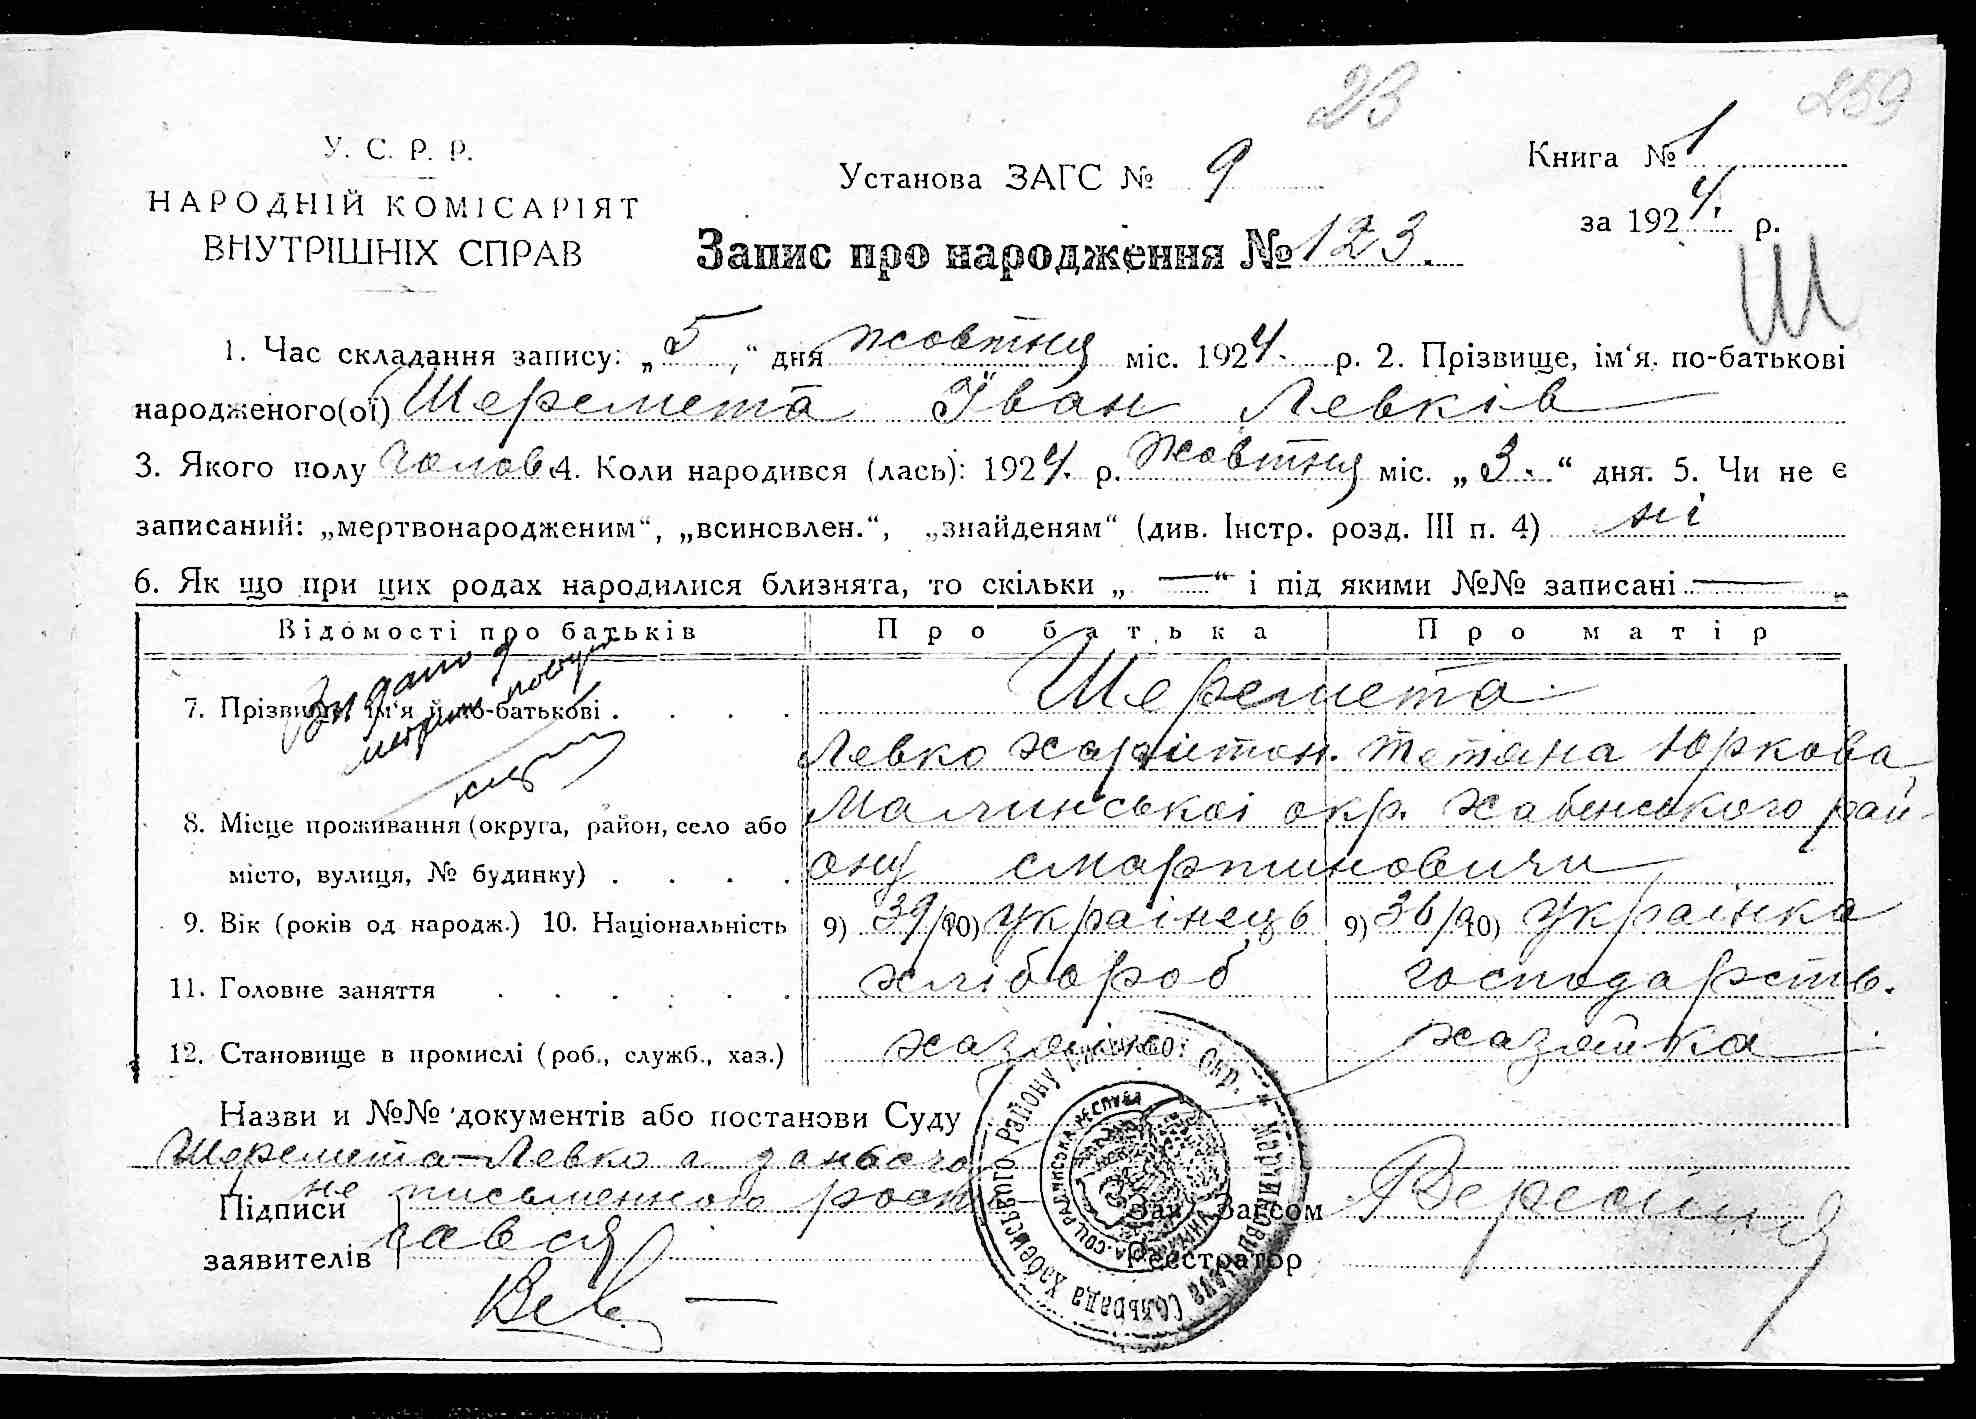 23
259
У. С. Р. Р.
НАРОДНІЙ КОМІСАРІЯТ
ВНУТРІШНІХ СПРАВ
Установа ЗАГС № 9
Книга № 1
за 1924 р.
Запис про народження № 123.
Ш
1. Час складання запису: „5“ дня жовтня міс. 1924. р. 2. Прізвище, ім‘я, по-батькові
народженого(ої) Шеремета Іван Левків
3. Якого полу чолов. 4. Коли народився (лась): 1924. р. Жовтня міс. „3.“ дня. 5. Чи не є
записаний: „мертвонародженим“, „всиновлен.“, „знайденям“ (див. Інстр. розд. III п. 4) ні
6. Як що при цих родах народилися близнята, то скільки „ — “ і під якими №№ записані —
Відомості про батьків Про батька Про матір
7. Прізвище, ім‘я й по-батькові . . . . Шеремета
Видано
Левко Харитон. Тетяна Юркова
8. Місце проживання (округа, район, село або Малинської окр. Хабенського рай-
місто, вулиця, № будинку) . . . . ону с Мартиновичи
9. Вік (років од народж.) 10. Національність 9) 39/ 10) українець 9) 36/ 10) українка
11. Головне заняття . . . . . . хлібороб господарств.
12. Становище в промислі (роб., служб., хаз.) хазяїн хазяйка
Назви и №№ документів або постанови Суду
Шеремета Левко а за
не письменного рост
Підписи
заявителів
Зав. Загсом
Реєстратор
Мартиновицька Сельрада Хабенського Району Малинської Окр.